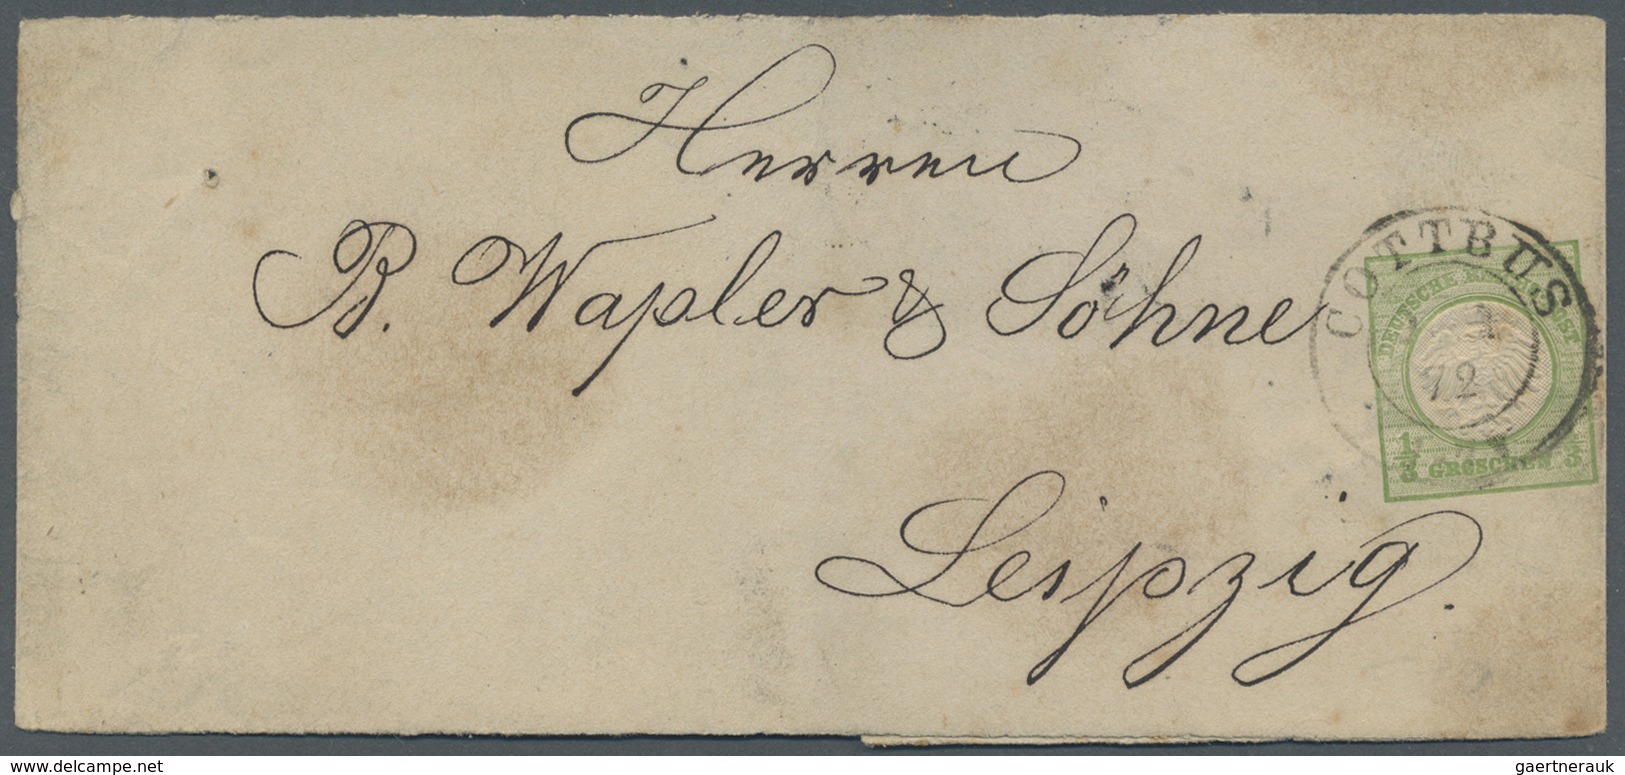 Herren
B. Wapler & Söhne
Leipzig.
COTTBUS
72
DEUTSCHE
1/3 GROSCHEN 3
www.delcampe.net
gaertnerauk